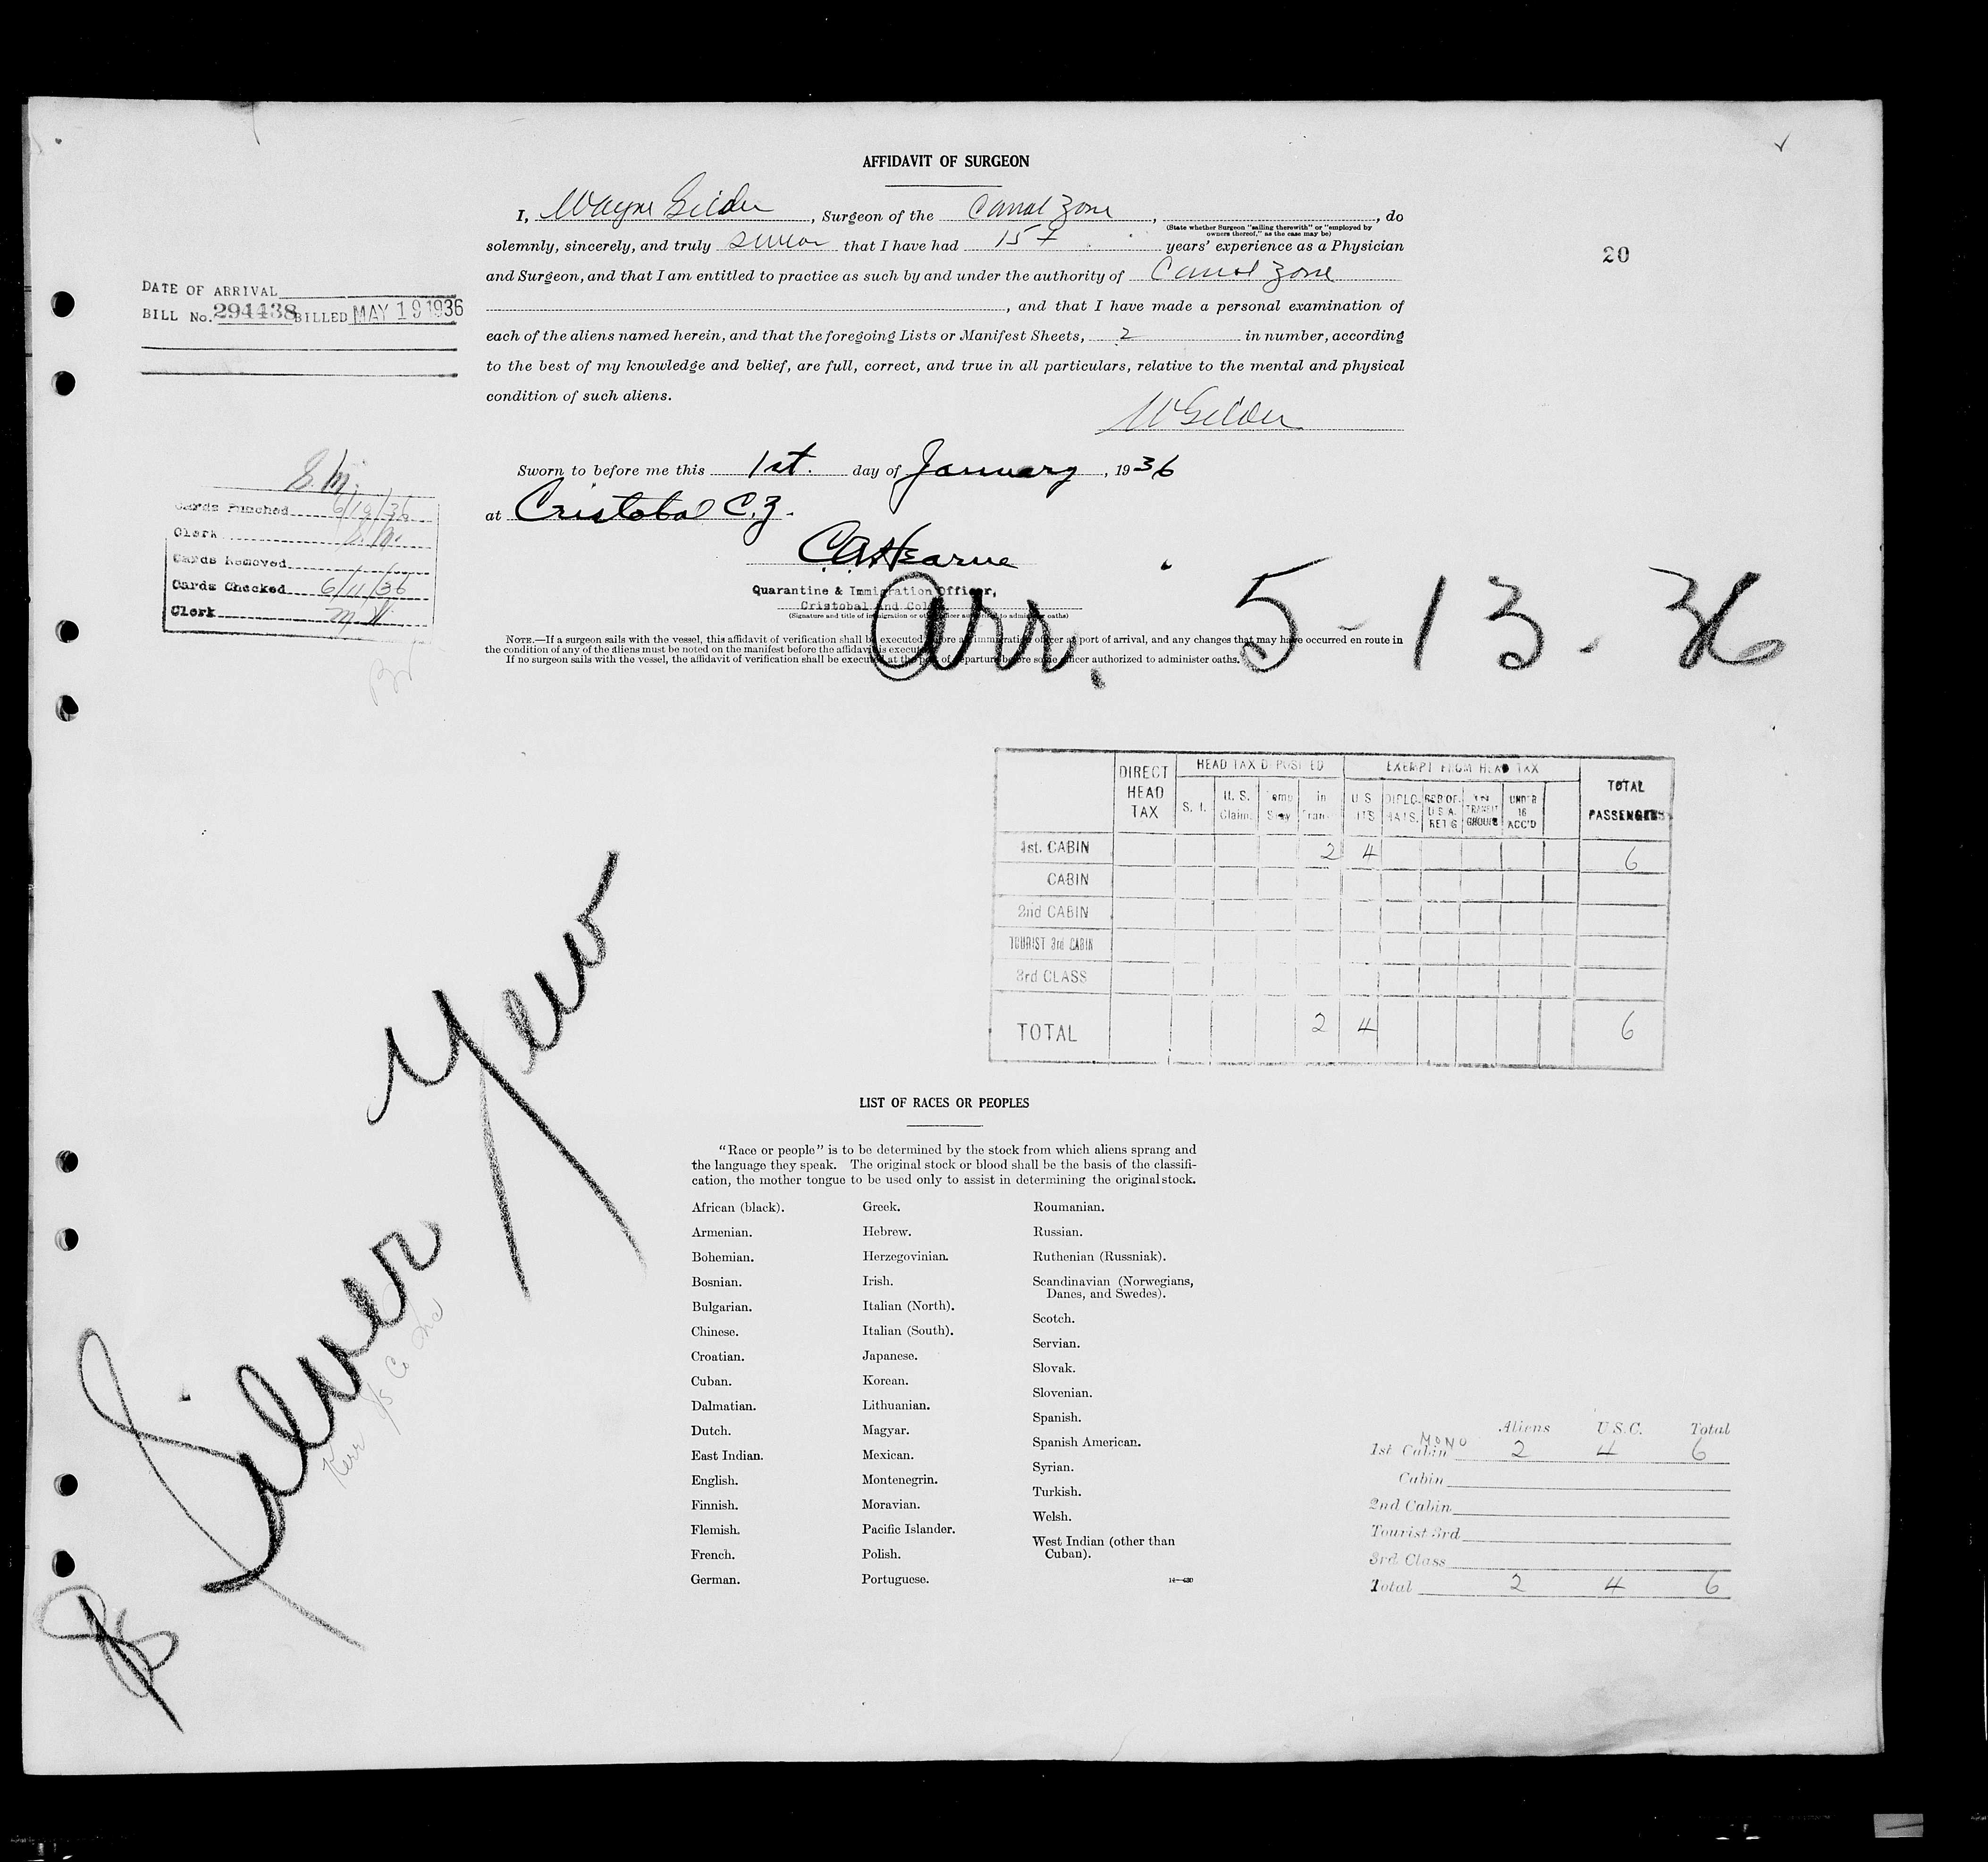 AFFIDAVIT OF SURGEON
I, Wayne Gilder, Surgeon of the Canal Zone, , do
(State whether Surgeon "sailing therewith" or "employed by
owners thereof," as the case may be)
solemnly, sincerely, and truly swear that I have had 15+ years' experience as a Physician
and Surgeon, and that I am entitled to practice as such by and under the authority of Canal Zone
, and that I have made a personal examination of
each of the aliens named herein, and that the foregoing Lists or Manifest Sheets, 2 in number, according
to the best of my knowledge and belief, are full, correct, and true in all particulars, relative to the mental and physical
condition of such aliens.
W Gilder
20
DATE OF ARRIVAL
BILL No. 294438 BILLED MAY 19 1936
Sworn to before me this 1st. day of January, 1936
at Cristobal C.Z.
C.A. Hearne
Quarantine & Immigration Officer,
Cristobal and Colon
(Signature and title of immigration or other officer authorized to administer oaths)
S.M.
Cards Punched 6/19/36
Clerk S.M.
Cards Removed
Cards Checked 6/11/36
Clerk M W
Arr. 5-13-36
NOTE.—If a surgeon sails with the vessel, this affidavit of verification shall be executed before an immigration officer at port of arrival, and any changes that may have occurred en route in
the condition of any of the aliens must be noted on the manifest before the affidavit is executed.
If no surgeon sails with the vessel, the affidavit of verification shall be executed at the port of departure before some officer authorized to administer oaths.
DIRECT HEAD TAX HEAD TAX DEPOSITED EXEMPT FROM HEAD TAX TOTAL PASSENGERS
S. I. U. S. Claim Temp Stay In Trans U S CITS DIPLO- MATS. RES OF U.S.A. RET'G IN TRANSIT GROUPS UNDER 16 ACC'D
1st. CABIN 2 4 6
CABIN
2nd CABIN
TOURIST 3rd CABIN
3rd CLASS
TOTAL 2 4 6
Silver Yew
Kerr SS Co Inc
SS
LIST OF RACES OR PEOPLES
"Race or people" is to be determined by the stock from which aliens sprang and
the language they speak. The original stock or blood shall be the basis of the classifi-
cation, the mother tongue to be used only to assist in determining the original stock.
African (black).
Armenian.
Bohemian.
Bosnian.
Bulgarian.
Chinese.
Croatian.
Cuban.
Dalmatian.
Dutch.
East Indian.
English.
Finnish.
Flemish.
French.
German.
Greek.
Hebrew.
Herzegovinian.
Irish.
Italian (North).
Italian (South).
Japanese.
Korean.
Lithuanian.
Magyar.
Mexican.
Montenegrin.
Moravian.
Pacific Islander.
Polish.
Portuguese.
Roumanian.
Russian.
Ruthenian (Russniak).
Scandinavian (Norwegians,
Danes, and Swedes).
Scotch.
Servian.
Slovak.
Slovenian.
Spanish.
Spanish American.
Syrian.
Turkish.
Welsh.
West Indian (other than
Cuban).
14—430
Aliens U.S.C. Total
MONO
1st Cabin 2 4 6
Cabin
2nd Cabin
Tourist 3rd
3rd Class
Total 2 4 6